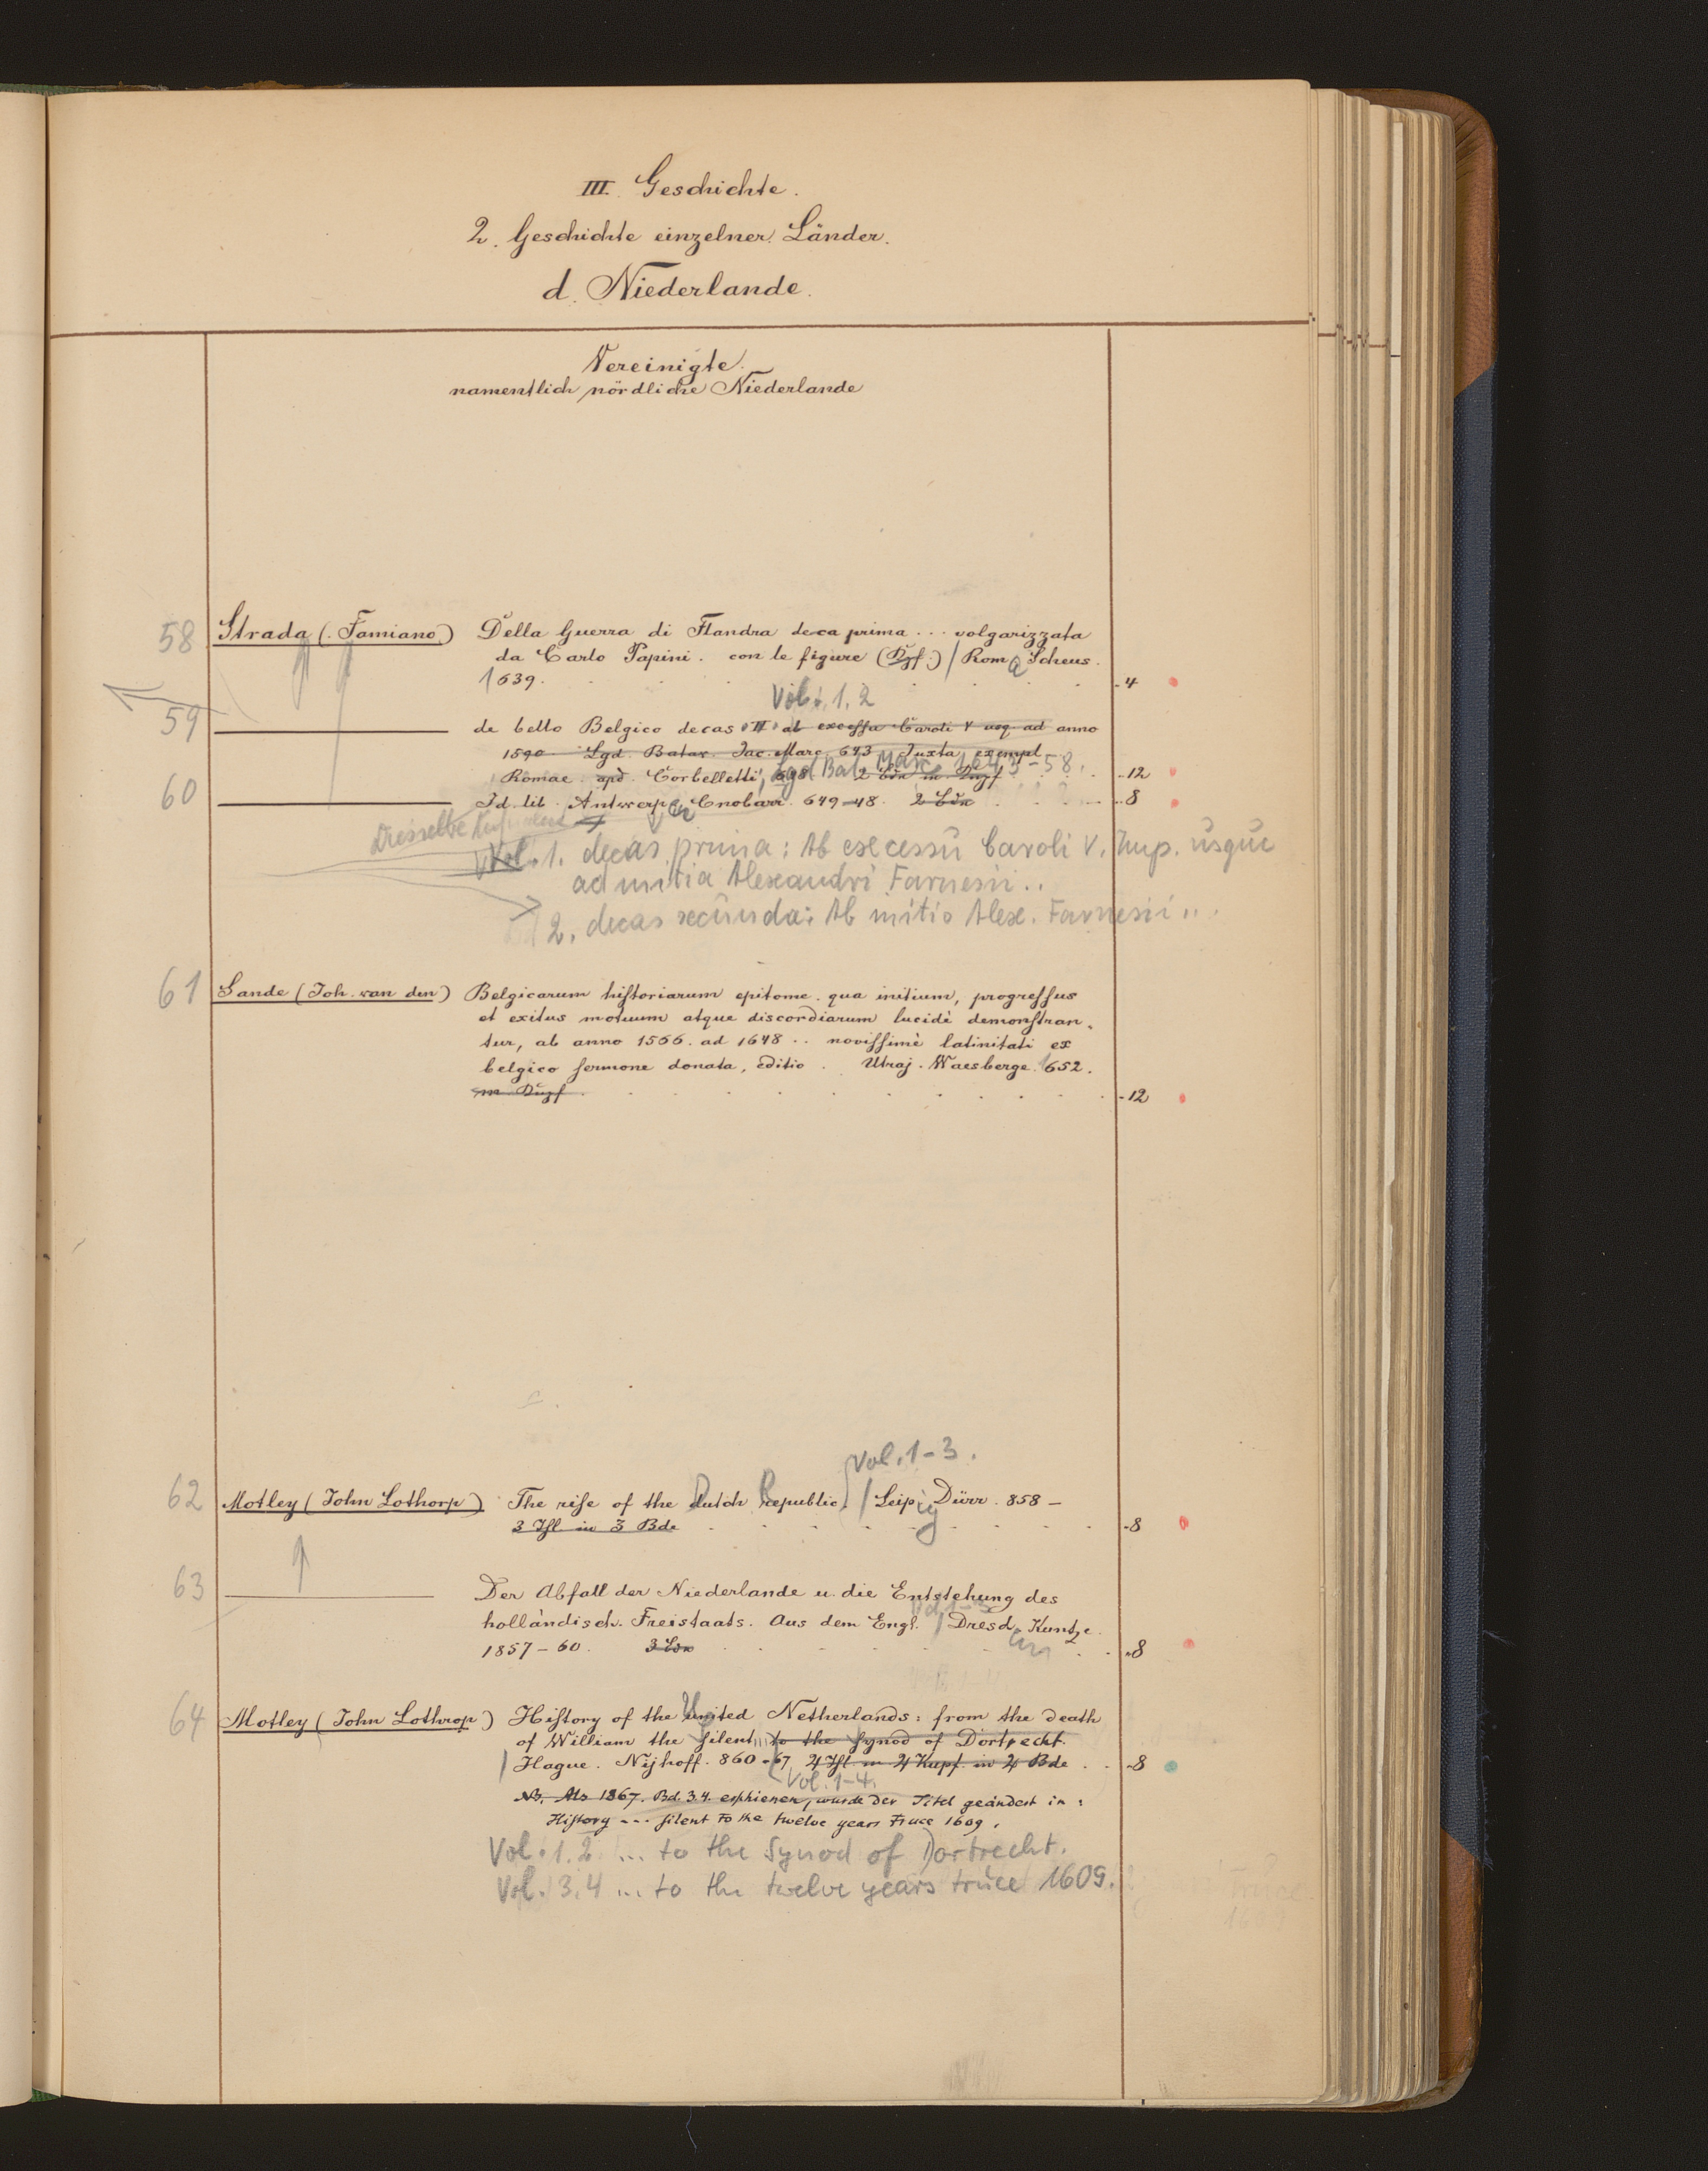 III. Geschichte.
2. Geschichte einzelner Länder.
d. Niederlande.
Vereinigte
namentlich nördliche Niederlande
58 Strada (Famiano) Della Guerra di Flandra deca prima ... volgarizzata
da Carlo Papini. con le figure / Roma Scheus.
1639. -4
Vol. 1. 2
59 de bello Belgico decas II ab excessu Caroli V usq. ad anno
1590 Lgd. Batav. Jac. Marc. 643 Juxta exempl.
Romae apd. Corbelletti, 648 2 Bde m Kupf -12
Lgd Bat Marc 1643-58.
60 Id. lib. Antwerp Cnobarr. 649-48. 2 Bde -8
Dieselbe
Vol. 1. decas prima: Ab excessu Caroli V. Imp. usque
ad initia Alexandri Farnesii..
2. decas secunda: Ab initio Alex. Farnesii...
61 Sande (Joh. van den) Belgicarum historiarum epitome. qua initium, progressus
et exitus motuum atque discordiarum lucidè demonstran-
tur, ab anno 1566. ad 1648 .. novissimè latinitati ex
belgico sermone donata, editio. Utraj. Waesberge. 1652.
m. Kupf. -12
Vol. 1-3.
62 Motley (John Lothorp) The rise of the Dutch Republic. / Leipzig Dürr. 858 -
3 Thl. in 3 Bde -8
63 Der Abfall der Niederlande u. die Entstehung des
holländisch. Freistaats. Aus dem Engl. / Dresden Kuntze.
1857-60. 3 Bde -8
64 Motley (John Lothrop) History of the United Netherlands: from the death
of William the silent to the synod of Dortrecht.
/ Hague. Nijhoff. 860-67. 4 Thl. m 4 Kupf. in 4 Bde -8
Vol. 1-4.
NB. Als 1867. Bd. 3.4. erschienen, wurde der Titel geändert in:
History --- silent to the twelve years truce 1609.
Vol. 1. 2. ... to the Synod of Dortrecht.
Vol. 3. 4 ... to the twelve years truce 1609.